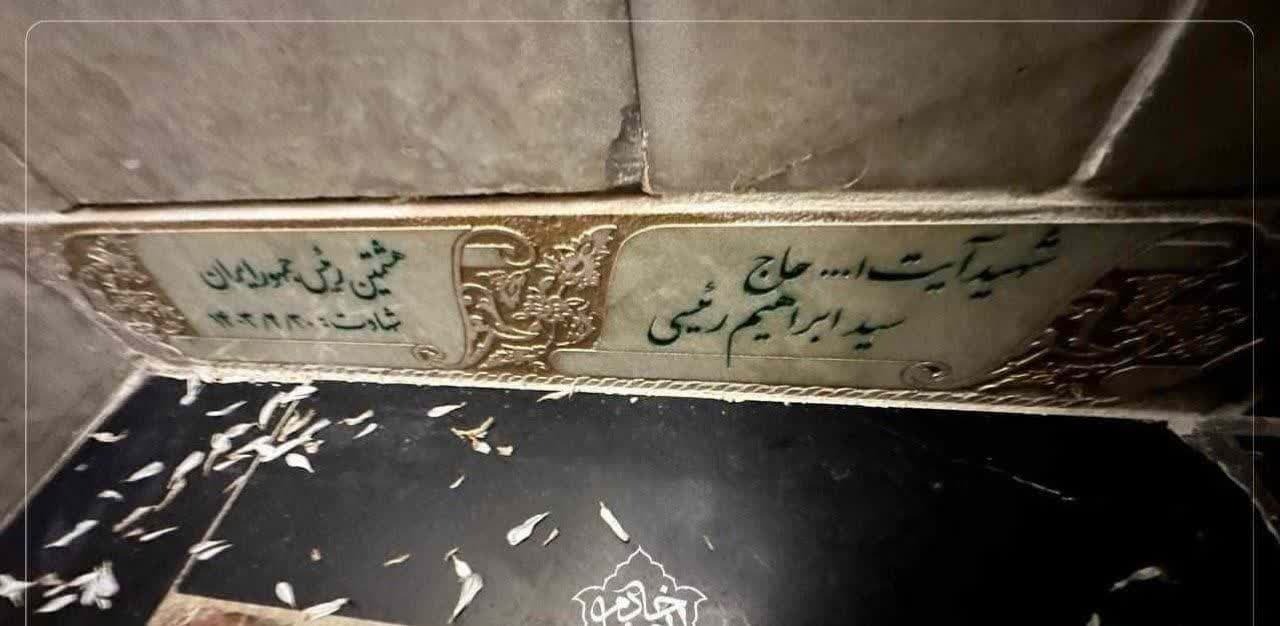 شهید آیت ا... حاج
سید ابراهیم رئیسی
هشتمین رئیس جمهور ایران
شهادت: ۱۴۰۳/۲/۳۰
خادم